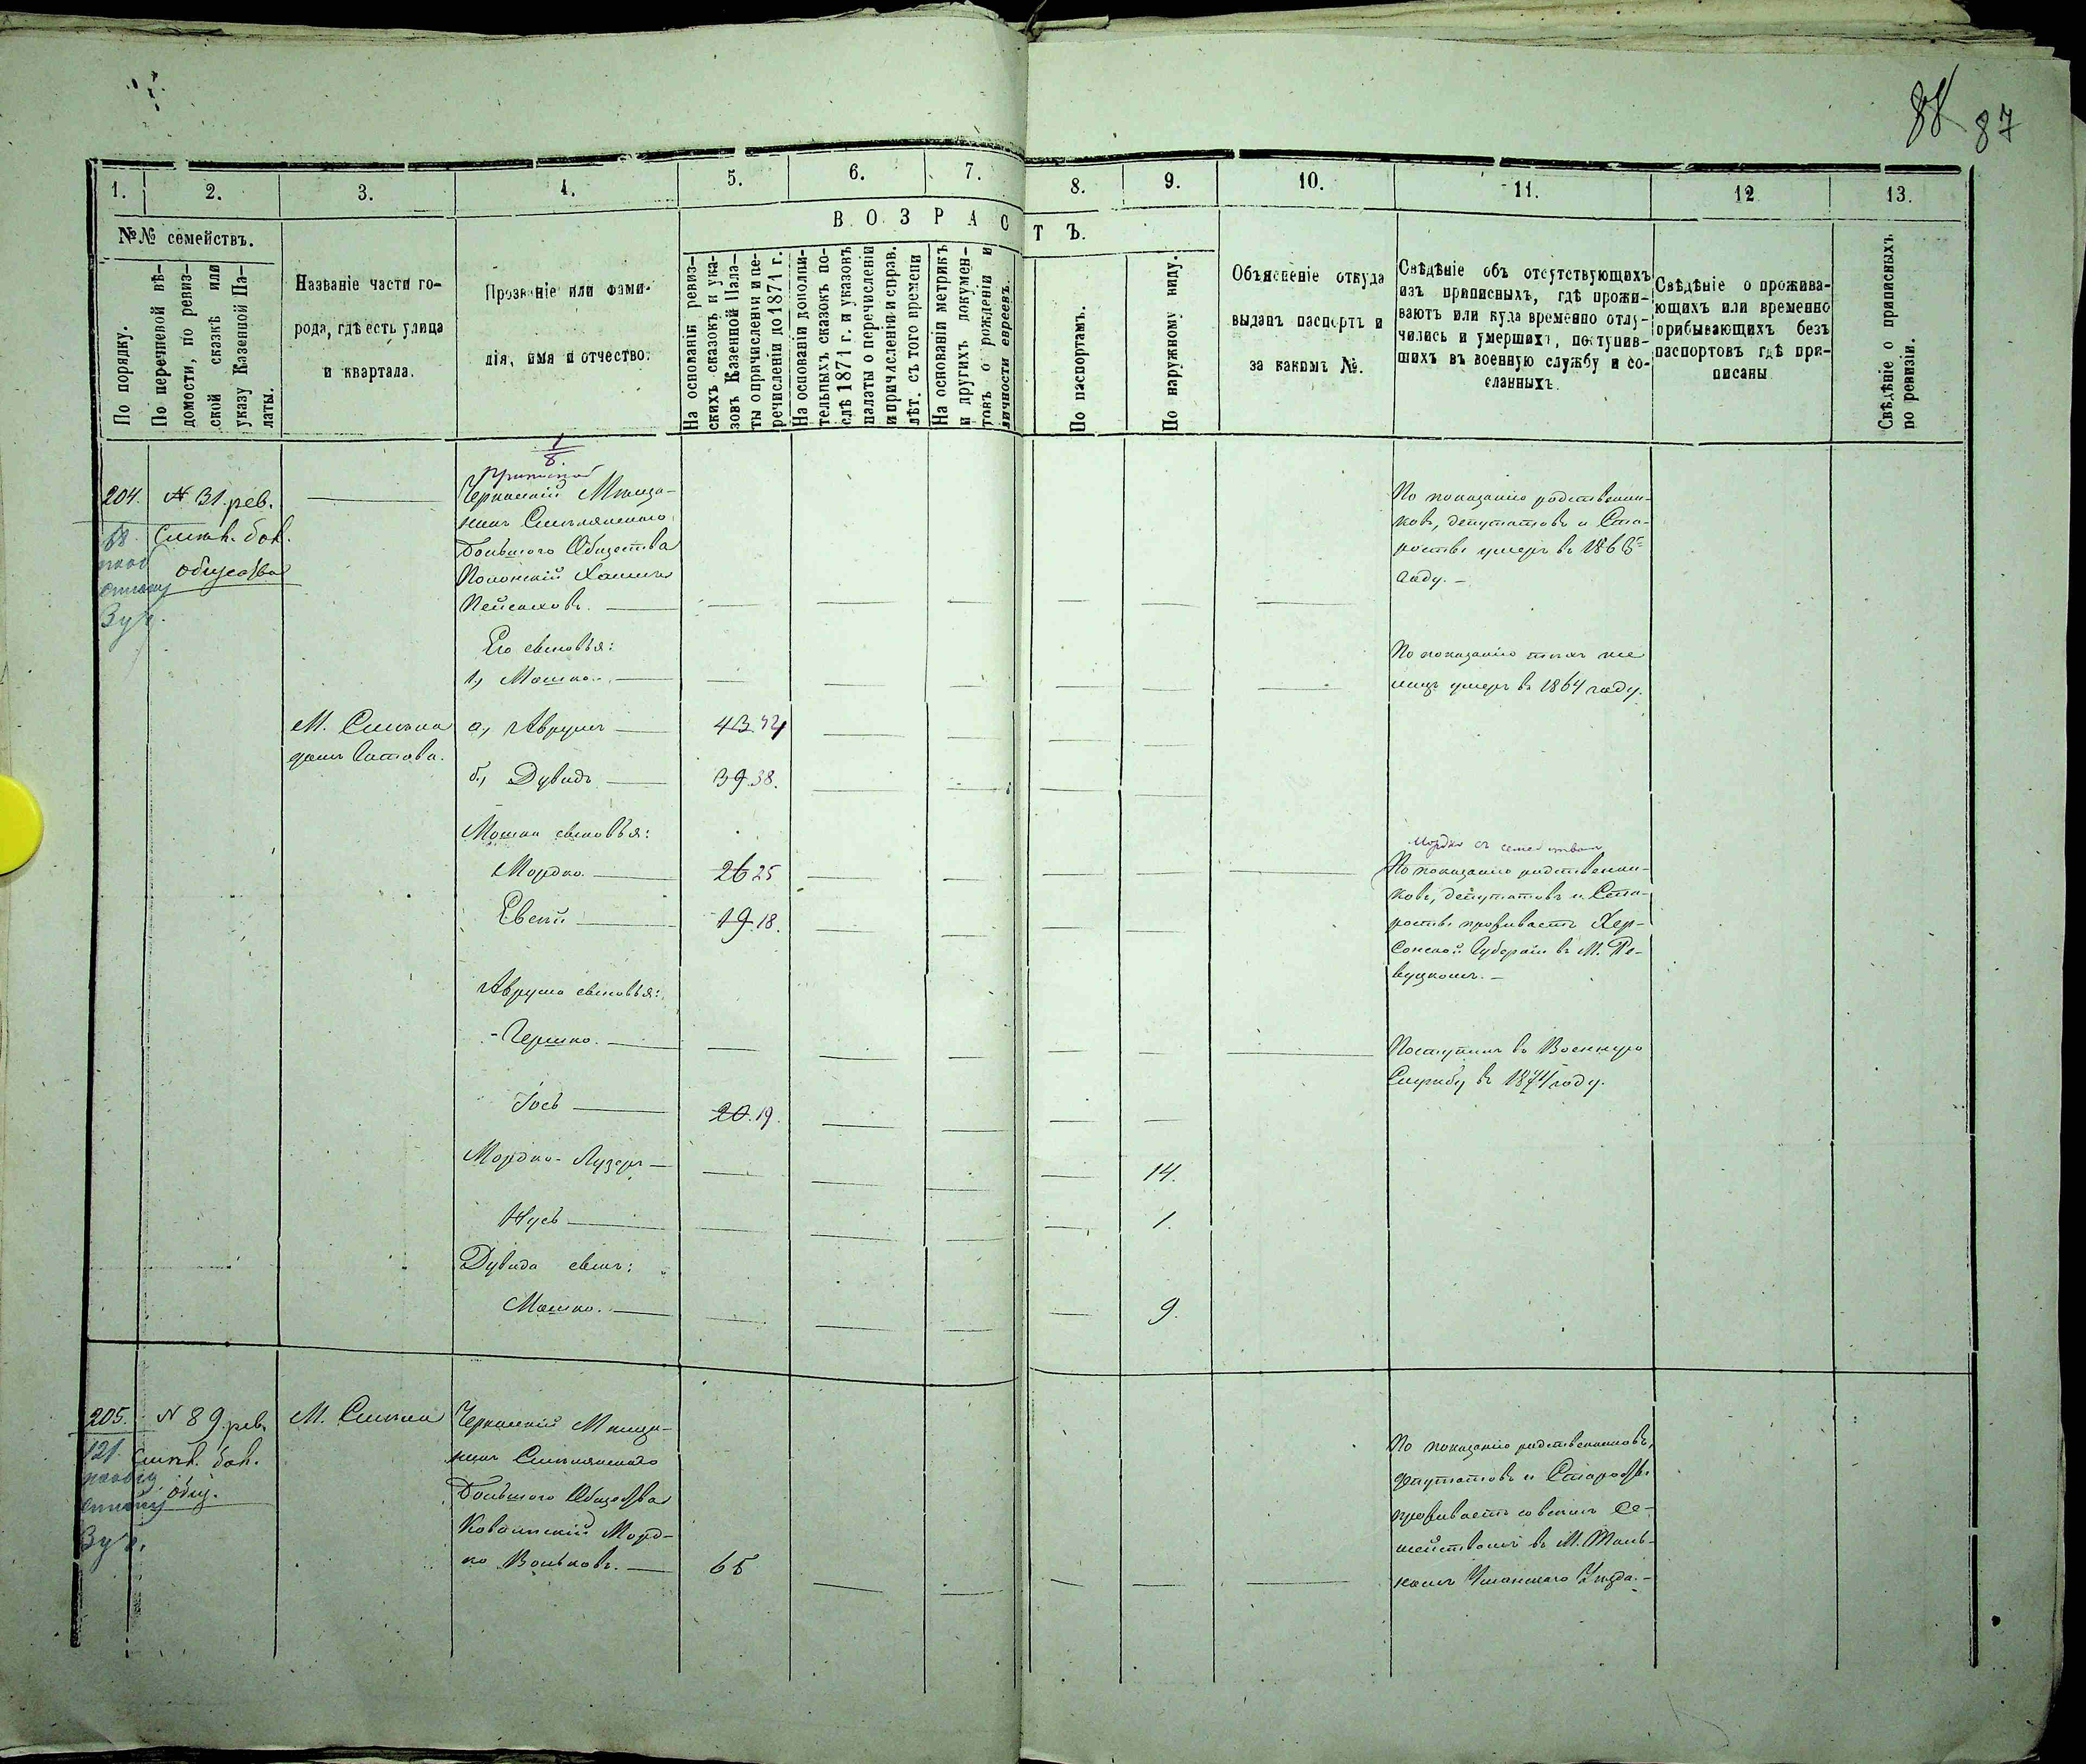 88 87
1. 2. 3. 4. 5. 6. 7. 8. 9. 10. 11. 12 13.
№№ семействъ.
По порядку.
По перечневой вѣ-
домости, по ревиз-
ской сказкѣ или
указу Казенной Па-
латы.
Названіе части го-
рода, гдѣ есть улица
и квартала.
Прозваніе или фами-
лія, имя и отчество.
ВОЗРАСТЪ.
На основаніи ревиз-
скихъ сказокъ и ука-
зовъ Казенной Пала-
ты о причисленіи и пе-
речисленіи до 1871 г.
На основаніи дополни-
тельныхъ сказокъ по-
слѣ 1871 г. и указовъ
палаты о перечисленіи
и причисленіи и справ.
лѣт. съ того времени
На основаніи метрикъ
и другихъ докумен-
товъ о рожденіи и
личности евреевъ.
По паспортамъ.
По наружному виду.
Объясненіе откуда
выданъ паспортъ и
за какомъ №.
Свѣдѣніе объ отсутствующихъ
изъ приписныхъ, гдѣ прожи-
ваютъ или куда временно отлу-
чились и умершихъ, поступив-
шихъ въ военную службу и со-
сланныхъ.
Свѣдѣніе о прожива-
ющихъ или временно
прибывающихъ безъ
паспортовъ гдѣ при-
писаны
Свѣдѣніе о приписныхъ
по ревизіи.
1/8.
204. № 31. рев.
Смѣл. бол.
общества
Черкаскій Мѣща-
нинъ Смѣлянскаго
Большого Общества
Полонскій
Пейсаховъ.
По показанію родственни-
ковъ, депутатовъ и Ста-
росты умеръ въ
году. –
Его сыновья:
1, Мошко.
По показанію тѣхъ же
лицъ умеръ въ 1864 году.
М. Смѣла
домъ
а, Аврумъ 43 42
б, Дувидъ 39. 38.
Мошки сыновья:
Мордко с семейством
Мордко. 26 25
По показанію родственни-
ковъ, депутатовъ и Ста-
росты проживаетъ Хер-
сонской Губерніи въ М. Ре-
вуцкомъ. –
Евсей 19. 18.
Аврума сыновья:
Гершко.
Поступилъ въ Военную
Службу въ 1874 году.
Іось 20. 19.
Мордко-Лузеръ 14.
Нусь 1.
Дувида сынъ:
Мошко. 9.
205. № 89. рев. М. Смѣла
121 Смѣл. бол.
общ.
Черкаскій Мѣща-
нинъ Смѣлянскаго
Большого Общества
Ковалискій Морд-
ко Вольковъ. 65
По показанію родственниковъ,
депутатовъ и Старосты
проживаетъ со всѣмъ Се-
мействомъ въ М.Таль-
номъ Уманскаго Уѣзда. –